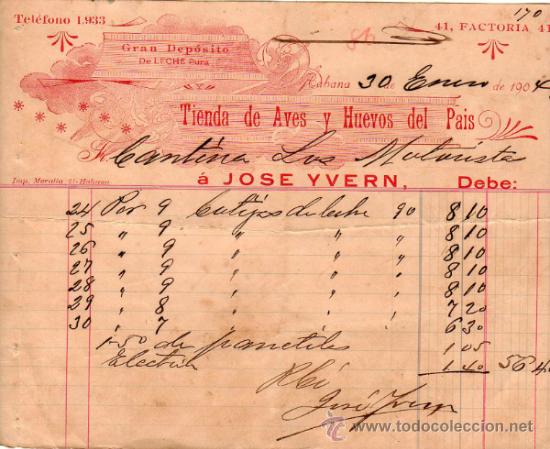 170
Teléfono 1.933
41, FACTORIA 41
Gran Depósito
De LECHE Pura
86
Habana 30 de Enero de 1904
Tienda de Aves y Huevos del Pais
Cantina Los Motorista
Imp. Maralla Habana
á JOSE YVERN, Debe:
24 Por 9 de leche 90 8 10
25 " 9 " " 8 10
26 " 9 " " 8 10
27 " 9 " " 8 10
28 " 9 " " 8 10
29 " 8 " " 7 20
30 " 7 6 30
1-50 de panetiles 1 05
1 40 56 4
Rbi
José Yvern
todocoleccion
© www.todocoleccion.net